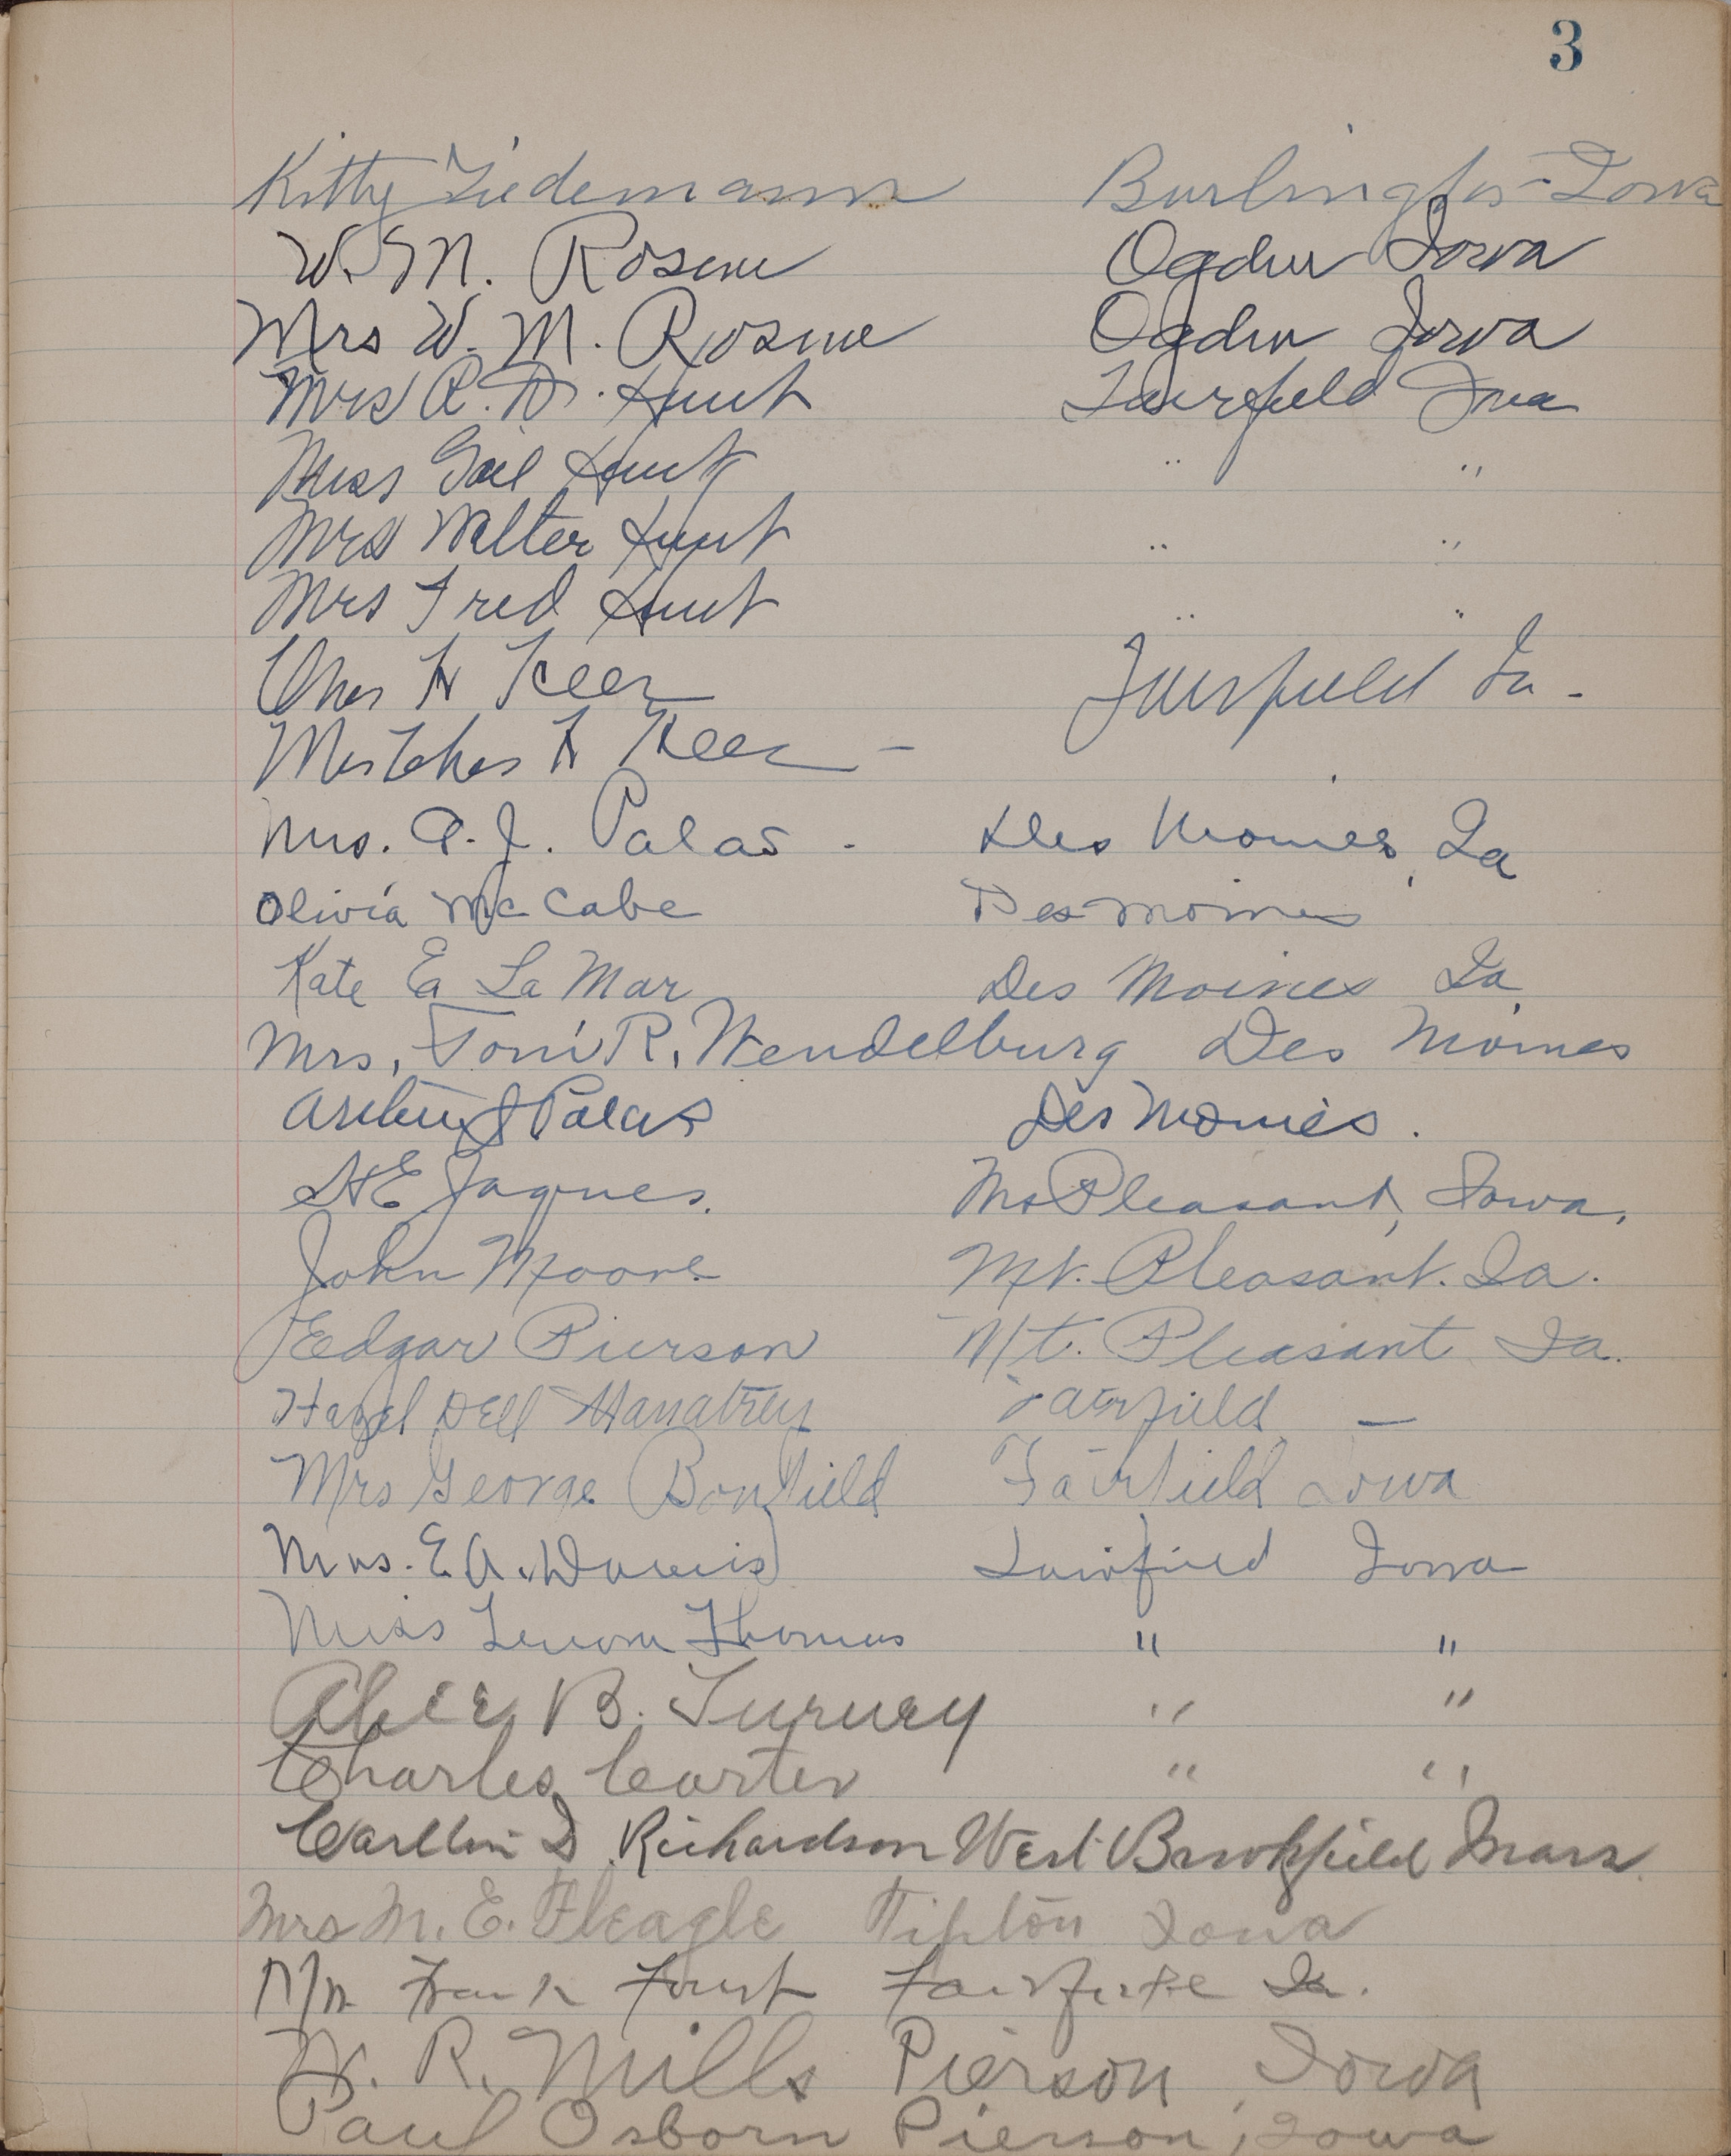 3
Kitty Tiedemann Burlington - Iowa
W. M. Rosene Ogden Iowa
Mrs W. M. Rosene Ogden Iowa
Mrs R. D. Hunt Fairfield Iowa
Miss Gail Hunt " "
Mrs Walter Hunt " "
Mrs Fred Hunt " "
Chas H Keer
Fairfield Ia -
Mrs Chas H Keer -
Mrs. A. J. Palas - Des Moines, Ia
Olivia McCabe Des Moines
Kate E La Mar Des Moines Ia
Mrs. Tom R. Wendelburg Des Moines
Arthur J Palas Des Moines.
H E Jaques. Mt Pleasant, Iowa.
John Moore Mt. Pleasant. Ia.
Edgar Pierson Mt. Pleasant Ia.
Hazel Dell Manatrey Fairfield —
Mrs George Bonfield Fairfield Iowa
Mrs. E. A. Davis Fairfield Iowa
Miss Thomas " "
Alice B. Turney " "
Charles Carter " "
D Richardson West Brookfield Mass
Mrs M. E. Fleagle Tipton Iowa
Frank Fairfield Ia.
W. R. Mills Pierson, Iowa
Paul Osborn Pierson, Iowa